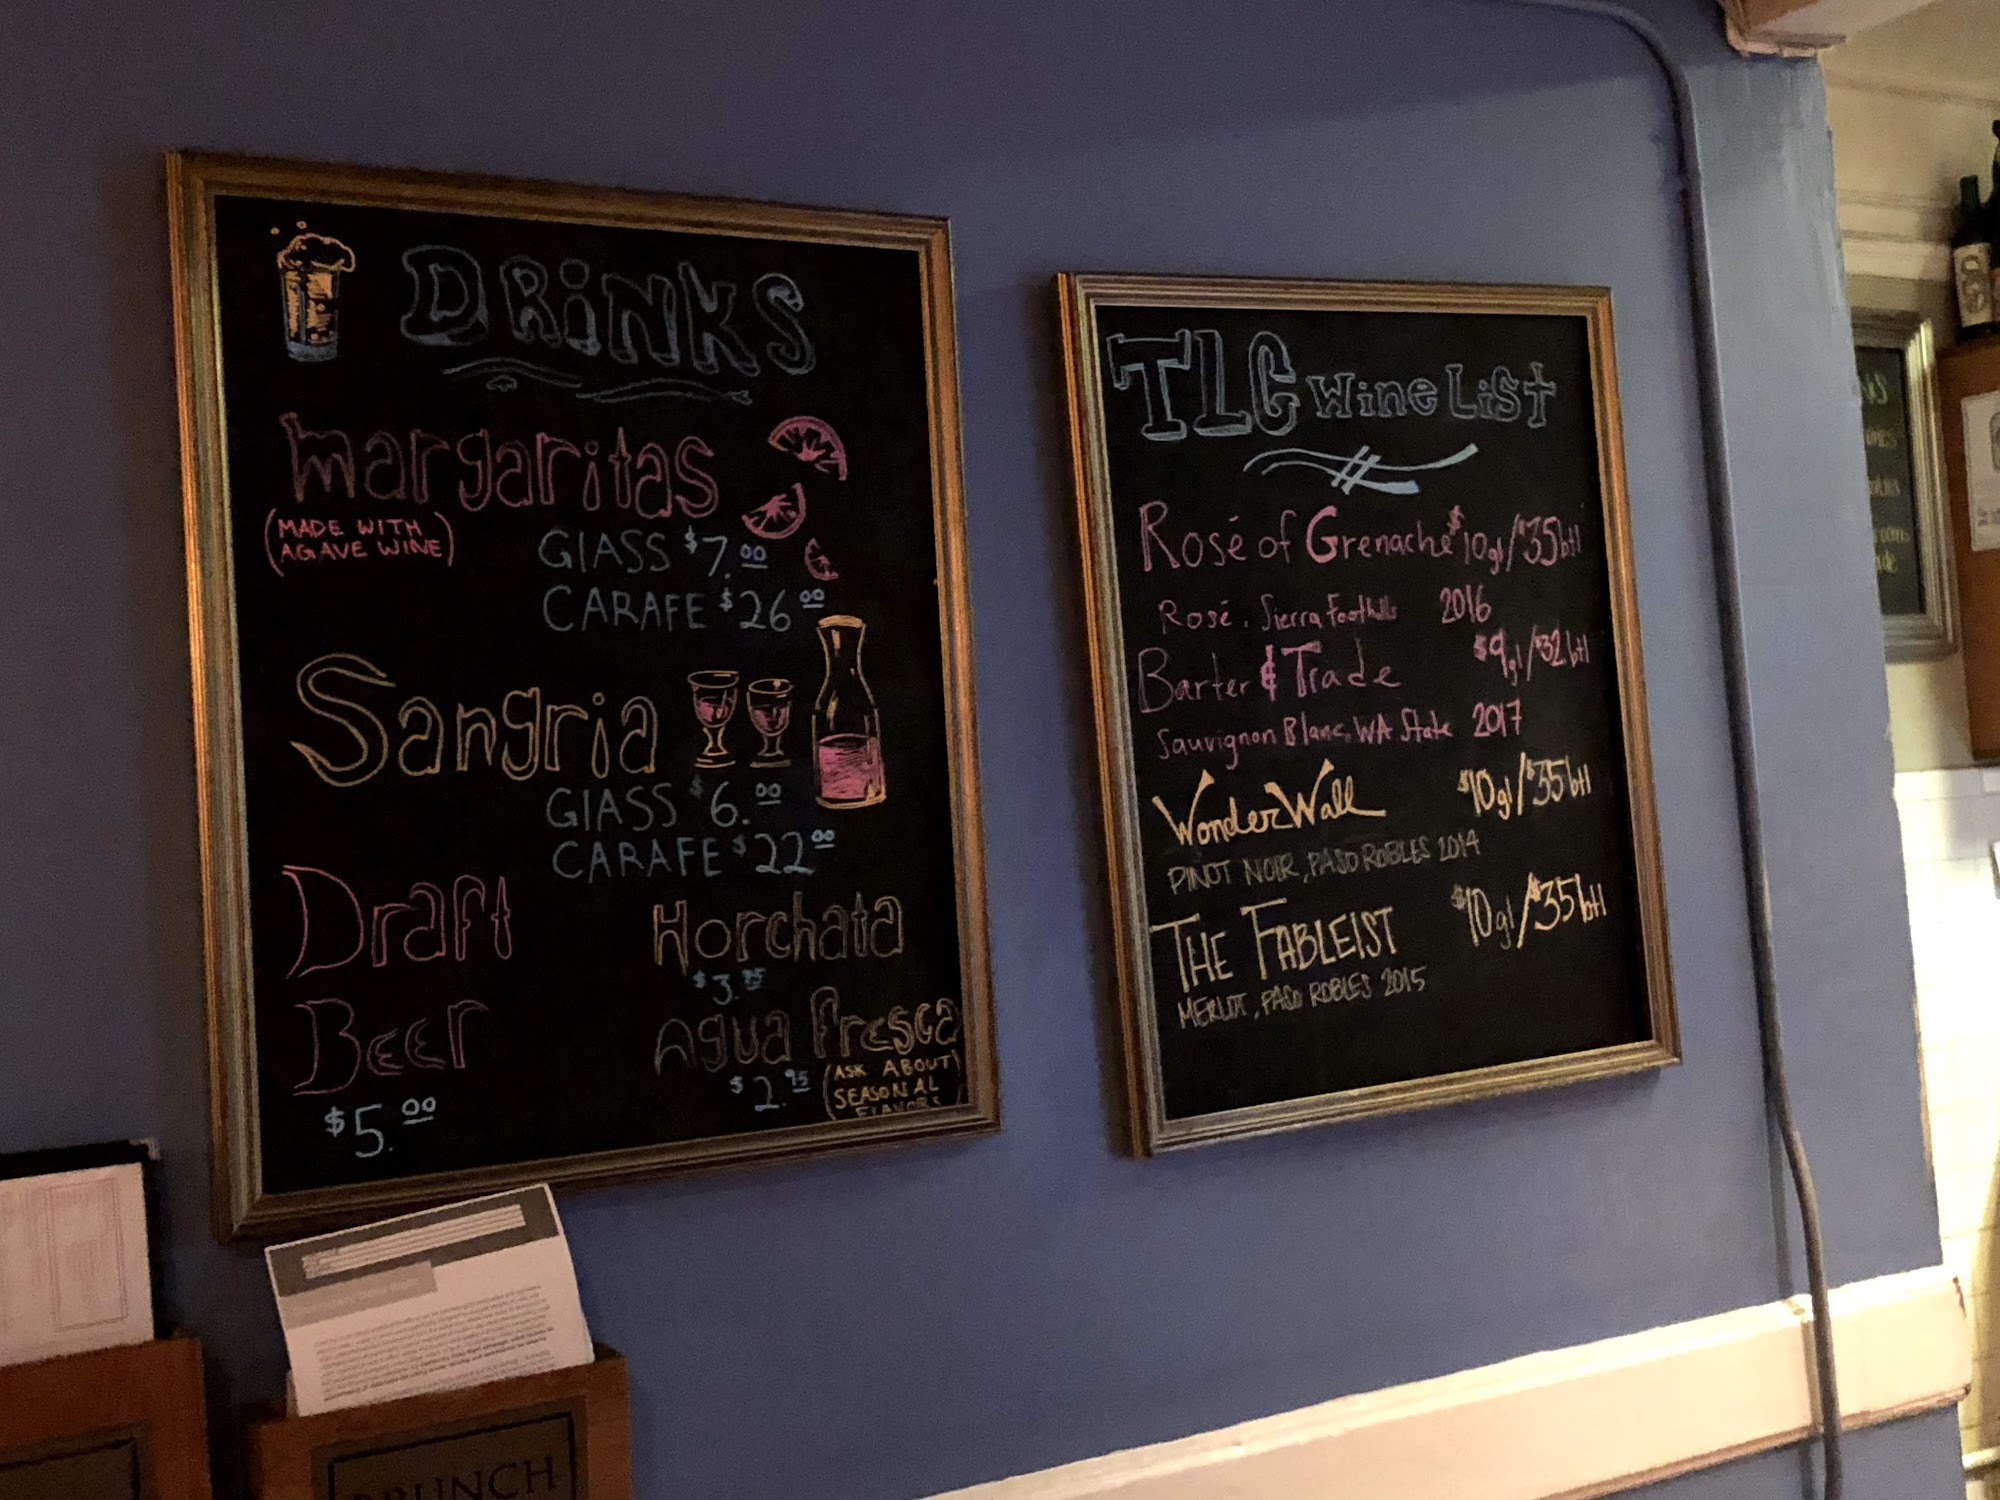 DRiNKS
margaritas
(MADE WITH
AGAVE WINE)
GLASS $7.00
CARAFE $26 00
Sangria
GLASS $6.00
CARAFE $22 00
Draft
Beer
$5.00
Horchata
$3.95
Agua fresca
$2.95
(ASK ABOUT)
SEASONAL
FLAVORS
TLC Wine List
Rosé of Grenache $10gl/$35btl
Rosé, Sierra Foothills 2016
Barter & Trade $9gl/$32btl
Sauvignon Blanc, WA State 2017
WonderWall $10gl/$35btl
PINOT NOIR, PASO ROBLES 2014
THE FABLEIST $10gl/$35btl
MERLOT, PASO ROBLES 2015
BRUNCH